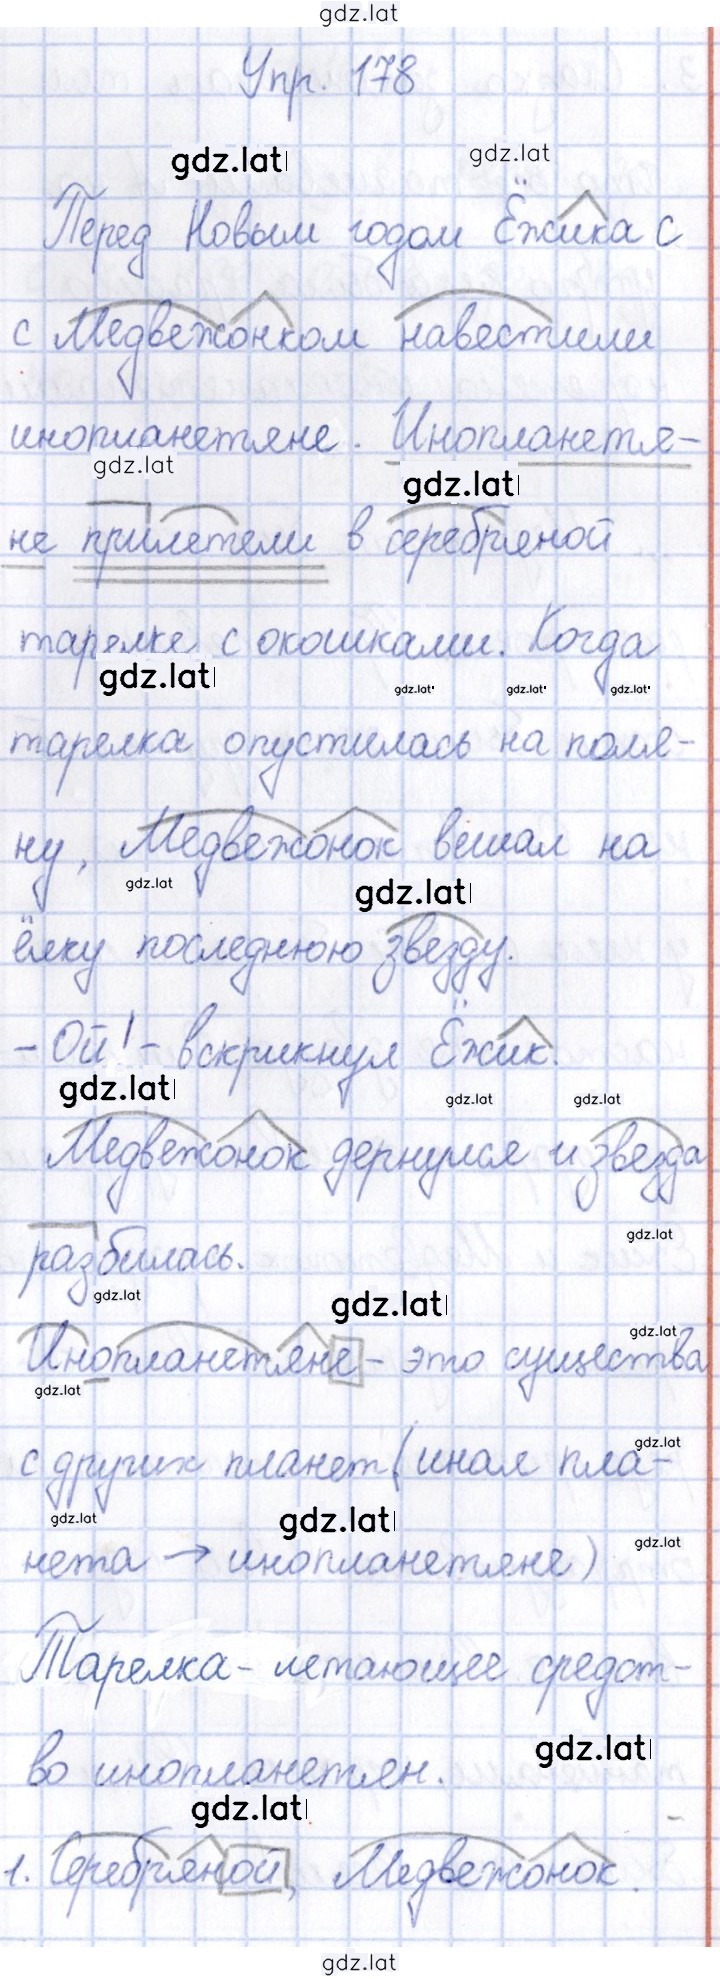 gdz.lat
Упр. 178
gdz.lat gdz.lat
Перед Новым годом Ёжика с
с Медвежонком навестили
инопланетяне. Инопланетя-
gdz.lat gdz.lat
не прилетели в серебряной
тарелке с окошками. Когда
gdz.lat gdz.lat gdz.lat gdz.lat
тарелка опустилась на поля-
ну, Медвежонок вешал на
gdz.lat gdz.lat
ёлку последнюю звезду.
- Ой! - вскрикнул Ёжик.
gdz.lat gdz.lat gdz.lat
Медвежонок дернулся и звезда
разбилась.
gdz.lat
gdz.lat gdz.lat
Инопланетяне - это существа
gdz.lat
gdz.lat
с других планет (иная пла-
gdz.lat
gdz.lat gdz.lat
gdz.lat
нета → инопланетяне)
Тарелка - летающее средст-
во инопланетян.
gdz.lat
gdz.lat
1. Серебряной, Медвежонок.
gdz.lat